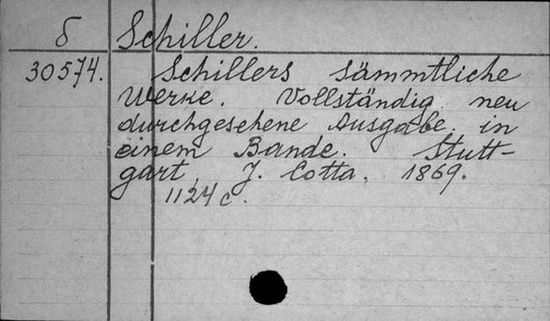 б Schiller.
30574. Schillers sämmtliche
Werke. Vollständig neu
durchgesehene Ausgabe in
einem Bande. Stutt-
gart, J. Cotta, 1869.
1124 c.